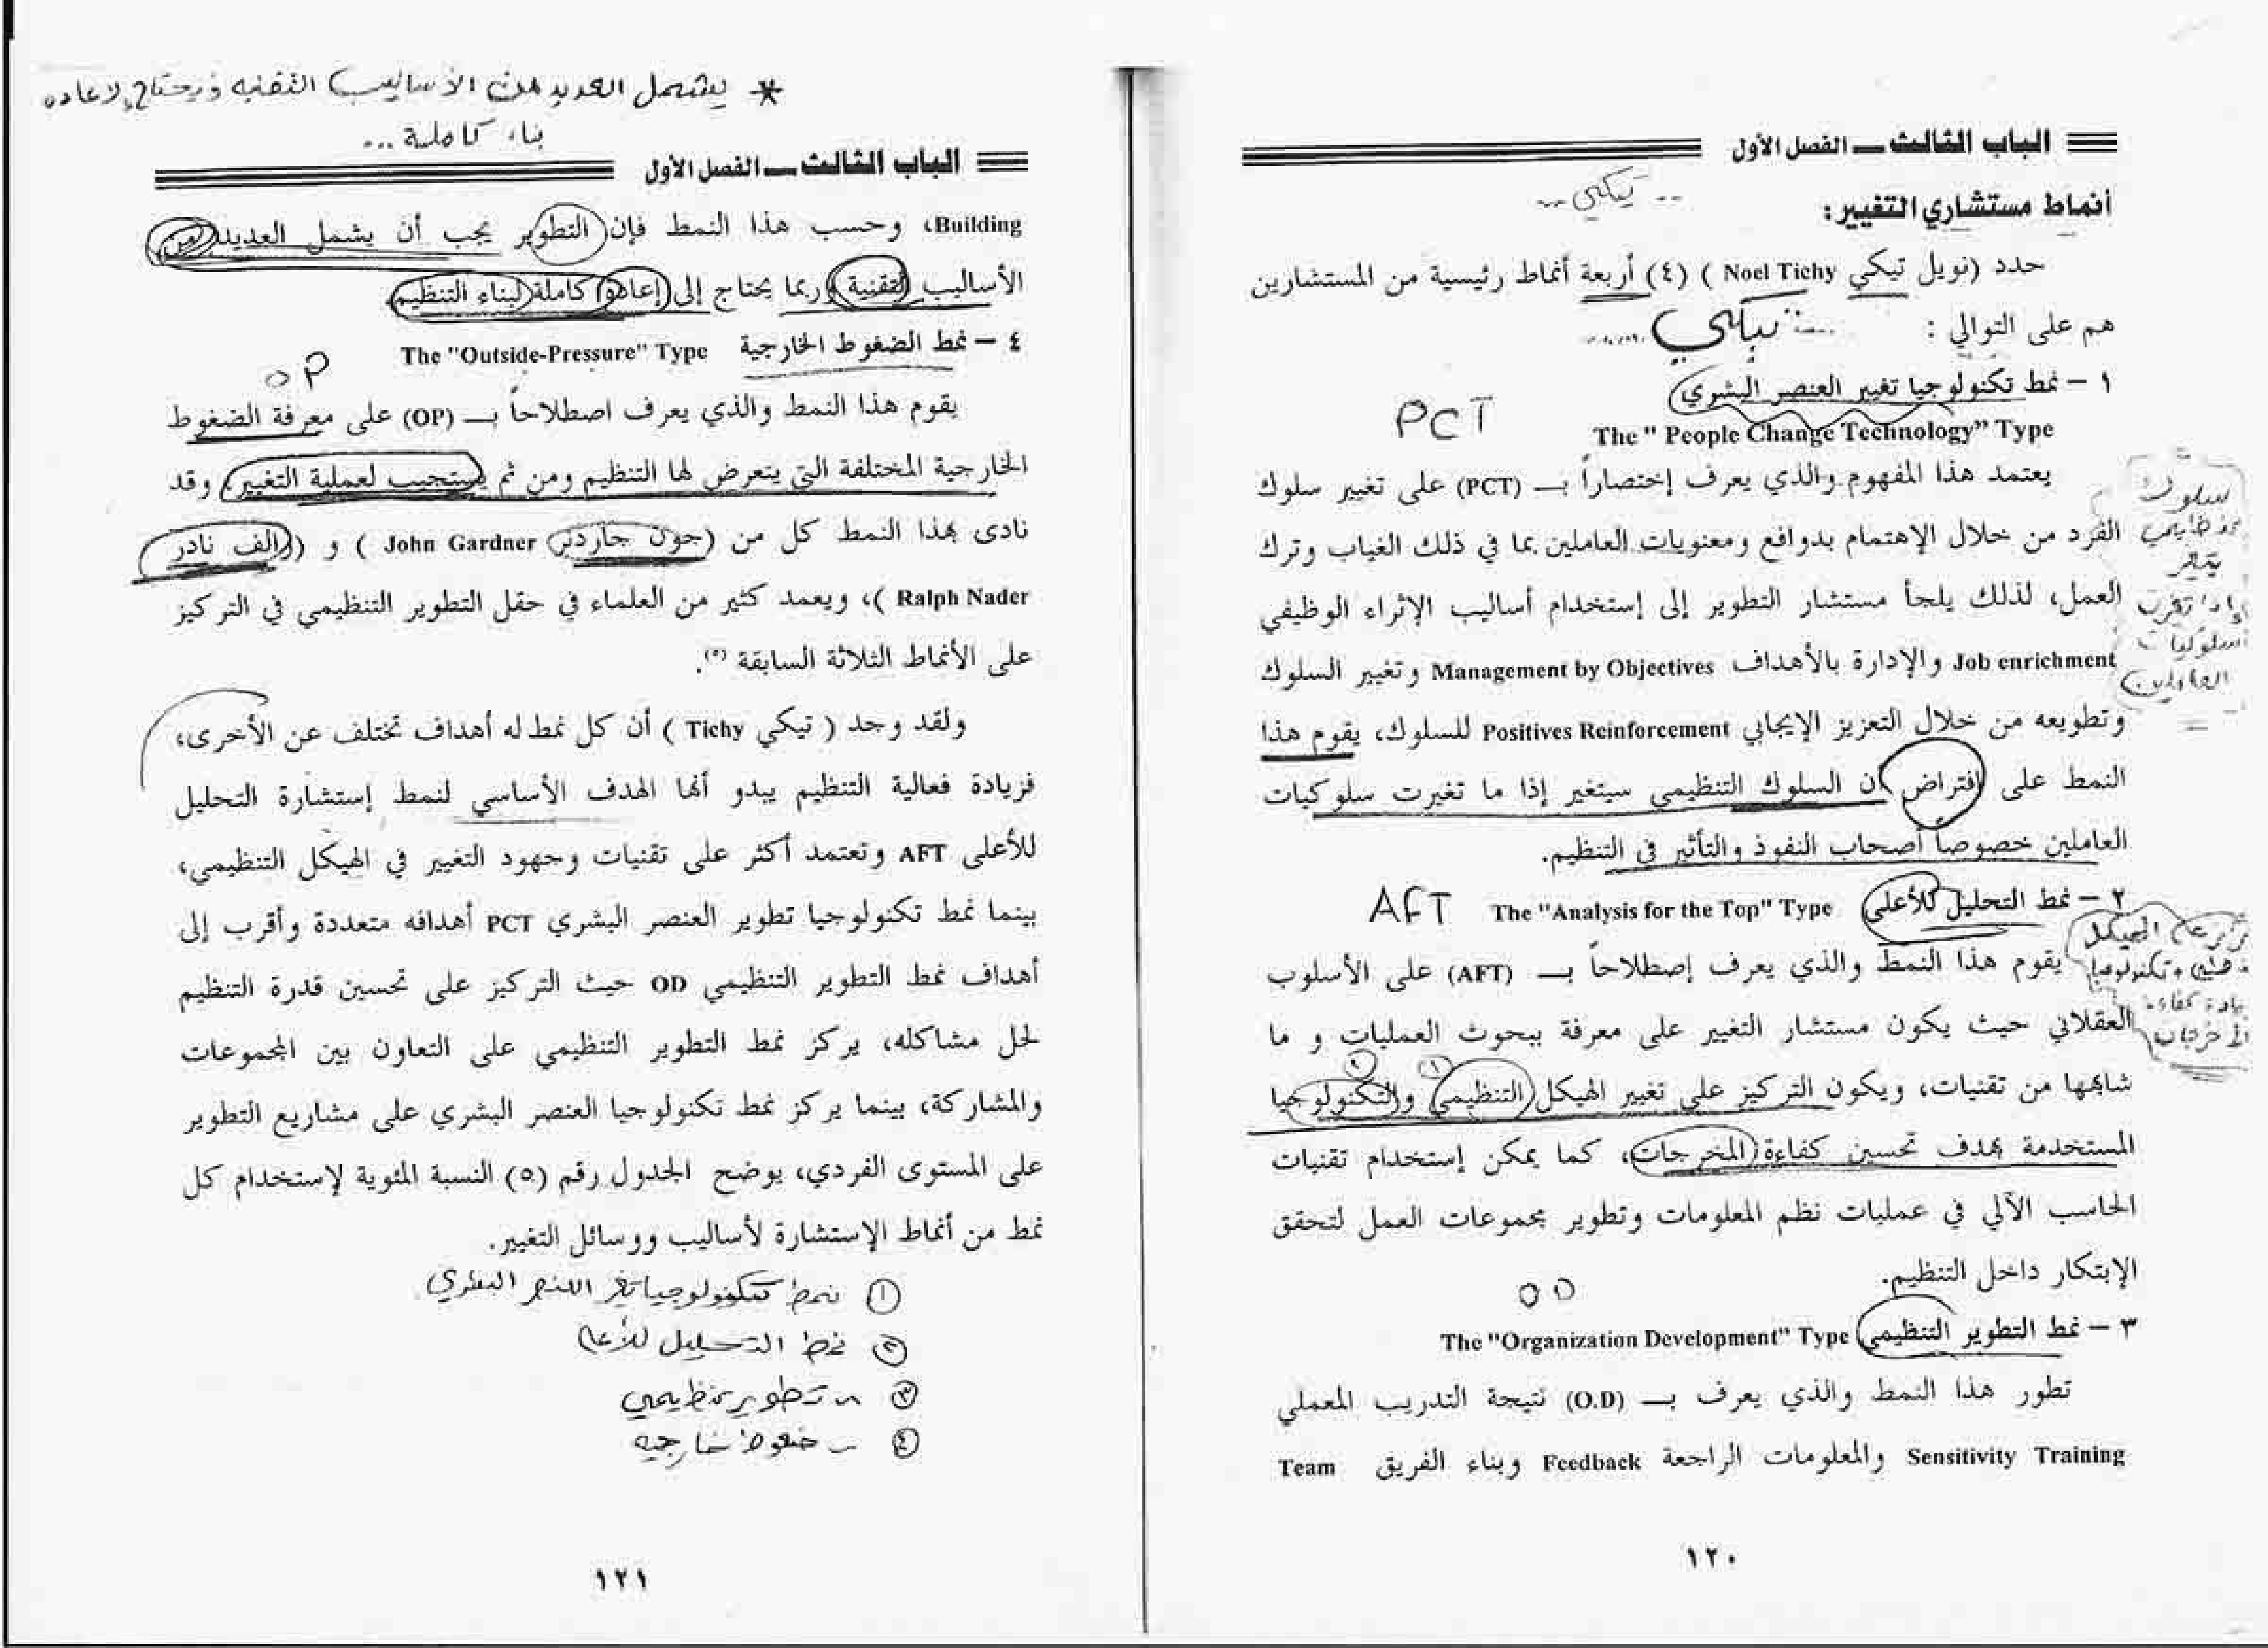 الباب الثالث — الفصل الأول
أنماط مستشاري التغيير:
.. تيكي ..
حدد (نويل تيكي Noel Tichy ) (٤) أربعة أنماط رئيسية من المستشارين
هم على التوالي :
١ – نمط تكنولوجيا تغيير العنصر البشري
PCT
The " People Change Technology" Type
يعتمد هذا المفهوم والذي يعرف إختصاراً بـ (PCT) على تغيير سلوك
الفرد من خلال الإهتمام بدوافع ومعنويات العاملين بما في ذلك الغياب وترك
العمل، لذلك يلجأ مستشار التطوير إلى إستخدام أساليب الإثراء الوظيفي
Job enrichment والإدارة بالأهداف Management by Objectives وتغيير السلوك
وتطويعه من خلال التعزيز الإيجابي Positives Reinforcement للسلوك، يقوم هذا
النمط على إفتراض أن السلوك التنظيمي سيتغير إذا ما تغيرت سلوكيات
العاملين خصوصاً أصحاب النفوذ والتأثير في التنظيم.
سلوك
يتغير
إذا تغيرت
سلوكيات
العاملين
٢ – نمط التحليل للأعلى The "Analysis for the Top" Type AFT
يقوم هذا النمط والذي يعرف إصطلاحاً بـ (AFT) على الأسلوب
العقلاني حيث يكون مستشار التغيير على معرفة ببحوث العمليات و ما
شابهها من تقنيات، ويكون التركيز على تغيير الهيكل التنظيمي والتكنولوجيا
المستخدمة بهدف تحسين كفاءة المخرجات، كما يمكن إستخدام تقنيات
الحاسب الآلي في عمليات نظم المعلومات وتطوير مجموعات العمل لتحقق
الإبتكار داخل التنظيم.
على الهيكل
وتكنولوجيا
كفاءة
المخرجات
OD
٣ – نمط التطوير التنظيمي The "Organization Development" Type
تطور هذا النمط والذي يعرف بـ (O.D) نتيجة التدريب المعملي
Sensitivity Training والمعلومات الراجعة Feedback وبناء الفريق Team
١٢٠
* يشمل العديد من الأساليب التقنية ويحتاج لإعاده
بناء كاملة ...
الباب الثالث — الفصل الأول
Building، وحسب هذا النمط فإن التطوير يجب أن يشمل العديد من
الأساليب التقنية وربما يحتاج إلى إعادة كاملة لبناء التنظيم.
٤ – نمط الضغوط الخارجية The "Outside-Pressure" Type
OP
يقوم هذا النمط والذي يعرف اصطلاحاً بـ (OP) على معرفة الضغوط
الخارجية المختلفة التي يتعرض لها التنظيم ومن ثم يستجيب لعملية التغيير، وقد
نادى بهذا النمط كل من (جون جاردنر John Gardner ) و (رالف نادر
Ralph Nader )، ويعمد كثير من العلماء في حقل التطوير التنظيمي في التركيز
على الأنماط الثلاثة السابقة (٥).
ولقد وجد ( تيكي Tichy ) أن كل نمط له أهداف تختلف عن الأخرى،
فزيادة فعالية التنظيم يبدو أنها الهدف الأساسي لنمط إستشارة التحليل
للأعلى AFT وتعتمد أكثر على تقنيات وجهود التغيير في الهيكل التنظيمي،
بينما نمط تكنولوجيا تطوير العنصر البشري PCT أهدافه متعددة وأقرب إلى
أهداف نمط التطوير التنظيمي OD حيث التركيز على تحسين قدرة التنظيم
لحل مشاكله، يركز نمط التطوير التنظيمي على التعاون بين المجموعات
والمشاركة، بينما يركز نمط تكنولوجيا العنصر البشري على مشاريع التطوير
على المستوى الفردي، يوضح الجدول رقم (٥) النسبة المئوية لإستخدام كل
نمط من أنماط الإستشارة لأساليب ووسائل التغيير.
١ نمط تكنولوجيا تغير العنصر البشري
٢ نمط التحليل للأعلى
٣ تطوير تنظيمي
٤ ضغوط خارجيه
١٢١